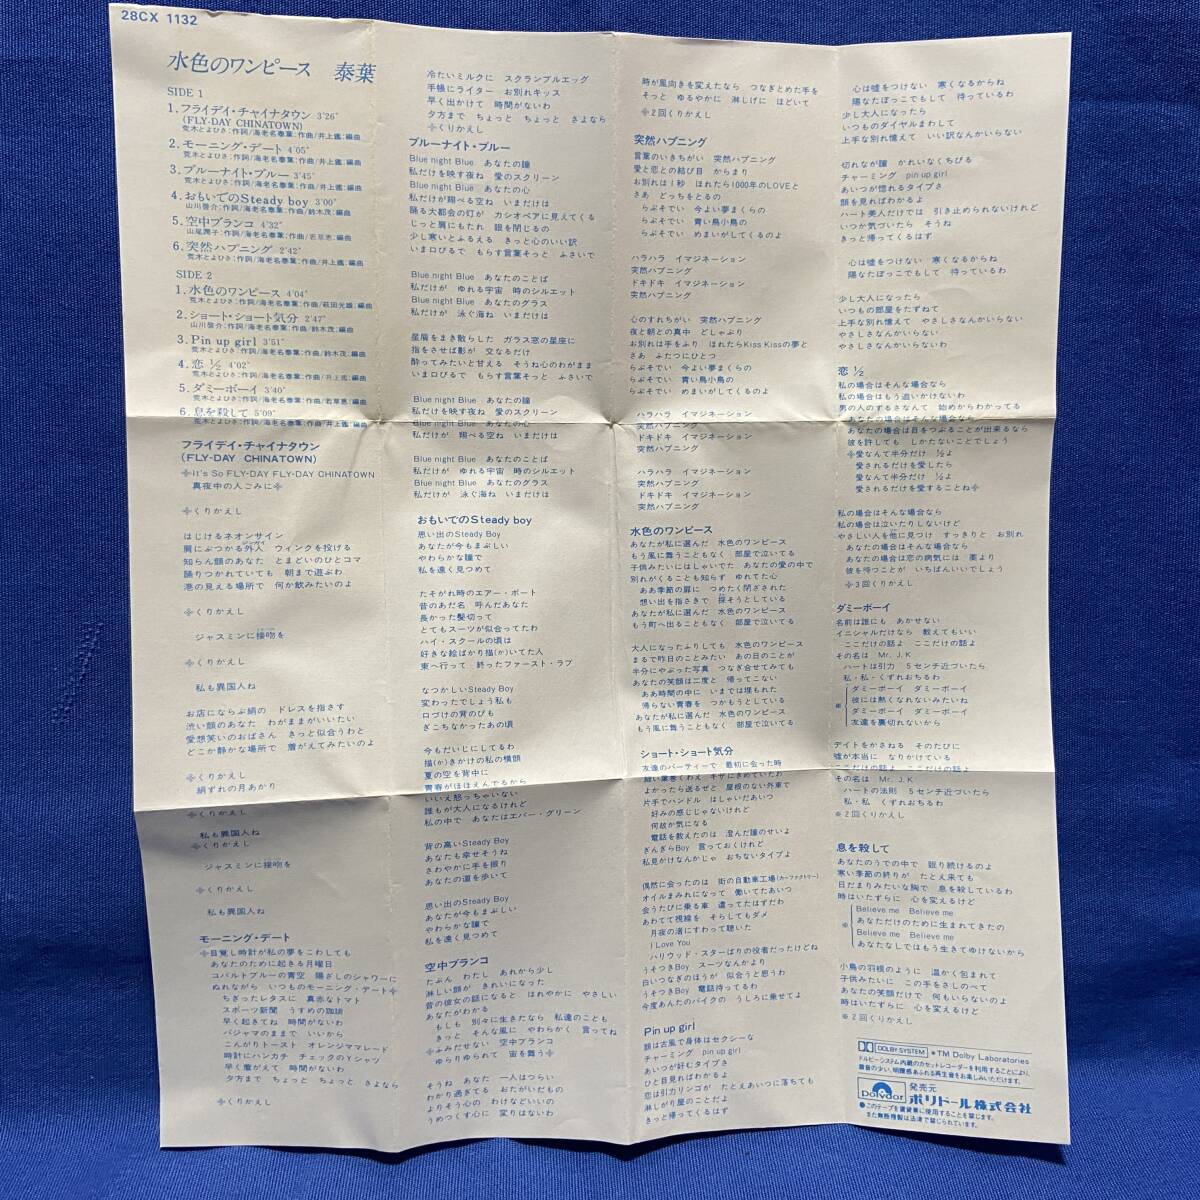 28CX 1132
水色のワンピース 泰葉
SIDE 1
1.フライデイ・チャイナタウン 3'26"
(FLY-DAY CHINATOWN)
荒木とよひさ:作詞/海老名泰葉:作曲/井上鑑:編曲
2.モーニング・デート 4'05"
荒木とよひさ:作詞/海老名泰葉:作曲/井上鑑:編曲
3.ブルーナイト・ブルー 3'45"
荒木とよひさ:作詞/海老名泰葉:作曲/井上鑑:編曲
4.おもいでのSteady boy 3'00"
山川啓介:作詞/海老名泰葉:作曲/鈴木茂:編曲
5.空中ブランコ 4'32"
山尾潤子:作詞/海老名泰葉:作曲/若草恵:編曲
6.突然ハプニング 2'42"
荒木とよひさ:作詞/海老名泰葉:作曲/井上鑑:編曲
SIDE 2
1.水色のワンピース 4'04"
荒木とよひさ:作詞/海老名泰葉:作曲/萩田光雄:編曲
2.ショート・ショート気分 2'47"
山川啓介:作詞/海老名泰葉:作曲/鈴木茂:編曲
3.Pin up girl 3'51"
荒木とよひさ:作詞/海老名泰葉:作曲/鈴木茂:編曲
4.恋 ½ 4'02"
荒木とよひさ:作詞/海老名泰葉:作曲/井上鑑:編曲
5.ダミーボーイ 3'40"
荒木とよひさ:作詞/海老名泰葉:作曲/若草恵:編曲
6.息を殺して 5'09"
荒木とよひさ:作詞/海老名泰葉:作曲/井上鑑:編曲
フライデイ・チャイナタウン
(FLY-DAY CHINATOWN)
※It's So FLY-DAY FLY-DAY CHINATOWN
真夜中の人ごみに※
※くりかえし
はじけるネオンサイン
肩にぶつかる外人 ウィンクを投げる
知らん顔のあなた とまどいのひとコマ
踊りつかれていても 朝まで遊ぶわ
港の見える場所で 何か飲みたいのよ
※くりかえし
ジャスミンに接吻を
※くりかえし
私も異国人ね
お店にならぶ絹の ドレスを指さす
渋い顔のあなた わがままがいいたい
愛想笑いのおばさん きっと似合うわと
どこか静かな場所で 着がえてみたいのよ
※くりかえし
絹ずれの月あかり
※くりかえし
私も異国人ね
※くりかえし
ジャスミンに接吻を
※くりかえし
私も異国人ね
モーニング・デート
※目覚し時計が私の夢をこわしても
あなたのために起きる月曜日
コバルトブルーの青空 陽ざしのシャワーに
ぬれながら いつものモーニング・デート※
ちぎったレタスに 真赤なトマト
スポーツ新聞 うすめの珈琲
早く起きてね 時間がないわ
パジャマのままで いいから
こんがりトースト オレンジママレード
時計にハンカチ チェックのYシャツ
早く着がえて 時間がないわ
夕方まで ちょっと ちょっと さよなら
※くりかえし
冷たいミルクに スクランブルエッグ
手帳にライター お別れキッス
早く出かけて 時間がないわ
夕方まで ちょっと ちょっと さよなら
※くりかえし
ブルーナイト・ブルー
Blue night Blue あなたの瞳
私だけを映す夜ね 愛のスクリーン
Blue night Blue あなたの心
私だけが 翔べる空ね いまだけは
踊る大都会の灯が カシオペアに見えてくる
じっと肩にもたれ 眼を閉じるの
少し寒いとふるえる きっと心のいい訳
いま口びるで もらす言葉そっと ふさいで
Blue night Blue あなたのことば
私だけが ゆれる宇宙 時のシルエット
Blue night Blue あなたのグラス
私だけが 泳ぐ海ね いまだけは
星屑をまき散らした ガラス窓の星座に
指をさせば影が 交なるだけ
酔ってみたいと甘える そうね心のわがまま
いま口びるで もらす言葉そっと ふさいで
Blue night Blue あなたの瞳
私だけを映す夜ね 愛のスクリーン
Blue night Blue あなたの心
私だけが 翔べる空ね いまだけは
Blue night Blue あなたのことば
私だけが ゆれる宇宙 時のシルエット
Blue night Blue あなたのグラス
私だけが 泳ぐ海ね いまだけは
おもいでのSteady boy
思い出のSteady Boy
あなたが今もまぶしい
やわらかな瞳で
私を遠く見つめて
たそがれ時のエアー・ポート
昔のあだ名 呼んだあなた
長かった髪切って
とてもスーツが似合ってたわ
ハイ・スクールの頃は
好きな絵ばかり描(か)いてた人
東へ行って 終ったファースト・ラブ
なつかしいSteady Boy
変わったでしょう私も
口づけの背のびも
ぎこちなかったあの頃
今もだいじにしてるわ
描(か)きかけの私の横顔
夏の空を背中に
青春がほほえんでるから
いいえ怒っちゃいない
誰もが大人になるけれど
私の中で あなたはエバー・グリーン
背の高いSteady Boy
あなたも幸せそうね
さわやかに手を振り
あなたの道を歩いて
思い出のSteady Boy
あなたが今もまぶしい
やわらかな瞳で
私を遠く見つめて
空中ブランコ
たぶん わたし あれから少し
淋しい顔が きれいになった
昔の彼女の話になると はれやかに やさしい
あなたがわかる
もしも 別々に生きたなら 私達のことも
きっと そんな風に やわらかく 言ってね
※ふみだせない 空中ブランコ
ゆらりゆられて 宙を舞う※
そうね あなた 一人はつらい
わかり過ぎてる おたがいだもの
よりそう心の わけなどいいの
うめつくす心に 変りはないわ
時が風向きを変えたなら つなぎとめた手を
そっと ゆるやかに 淋しげに ほどいて
※2回くりかえし
突然ハプニング
言葉のいきちがい 突然ハプニング
愛と恋との結び目 からまり
お別れは1秒 ほれたら1000年のLOVEと
さあ どっちをとるの
らぶそでい 今よい夢まくらの
らぶそでい 青い鳥小鳥の
らぶそでい めまいがしてくるのよ
ハラハラ イマジネーション
突然ハプニング
ドキドキ イマジネーション
突然ハプニング
心のすれちがい 突然ハプニング
夜と朝との真中 どしゃぶり
お別れは手をふり ほれたらKiss Kissの夢と
さあ ふたつにひとつ
らぶそでい 今よい夢まくらの
らぶそでい 青い鳥小鳥の
らぶそでい めまいがしてくるのよ
ハラハラ イマジネーション
突然ハプニング
ドキドキ イマジネーション
突然ハプニング
ハラハラ イマジネーション
突然ハプニング
ドキドキ イマジネーション
突然ハプニング
水色のワンピース
あなたが私に選んだ 水色のワンピース
もう風に舞うこともなく 部屋で泣いてる
子供みたいにはしゃいでた あなたの愛の中で
別れがくることも知らず ゆれてた心
ああ季節の扉に つめたく閉ざされた
想い出を指さきで 探そうとしている
あなたが私に選んだ 水色のワンピース
もう町へ出ることもなく 部屋で泣いてる
大人になったよりしても 水色のワンピース
まるで昨日のことみたい あの日のことが
半分にやぶった写真 つなぎ合せてみても
あなたの笑顔は二度と 帰ってこない
ああ時間の中に いまでは埋もれた
帰らない青春を つかもうとしている
あなたが私に選んだ 水色のワンピース
もう風に舞うこともなく 部屋で泣いてる
ショート・ショート気分
友達のパーティーで 最初に会った時
細い葉巻くわえ キザにきめていたわ
よかったら送るぜと 屋根のない外車で
片手でハンドル はしゃいだあいつ
好みの感じじゃないけれど
何故か気になる
電話を教えたのは 澄んだ瞳のせいよ
ぎんぎらBoy 言っておくけれど
私見かけなんかじゃ おちないタイプよ
偶然に会ったのは 街の自動車工場(カーファクトリー)
オイルまみれになって 働いてたあいつ
会うたびに乗る車 違ってたはずだわ
あわてて視線を そらしてもダメ
月夜の渚にすわって聴いた
I Love You
ハリウッド・スターばりの役者だったけどね
うそつきBoy スーツなんかより
白いつなぎのほうが 似合うと思うわ
うそつきBoy 電話待ってるわ
今度あんたのバイクの うしろに乗せてよ
Pin up girl
顔は古風で身体はセクシーな
チャーミング pin up girl
あいつが好むタイプさ
ひと目見ればわかるよ
恋は引力リンゴが たとえあいつに落ちても
淋しがり屋のことだよ
きっと帰ってくるはず
心は嘘をつけない 寒くなるからね
陽なたぼっこでもして 待っているわ
少し大人になったら
いつものダイヤルまわして
上手な別れ憶えて いい訳なんかいらない
切れなが瞳 かれいなくちびる
チャーミング pin up girl
あいつが惚れるタイプさ
顔を見ればわかるよ
ハート美人だけでは 引き止められないけれど
いつか気づいたら そうね
きっと帰ってくるはず
心は嘘をつけない 寒くなるからね
陽なたぼっこでもして 待っているわ
少し大人になったら
いつもの部屋をたずねて
上手な別れ憶えて やさしさなんかいらない
やさしさなんかいらない
やさしさなんかいらないわ
恋 ½
私の場合はそんな場合なら
私の場合はもう追いかけないわ
男の人のずるさなんて 始めからわかってる
あなたの場合はそんな場合なら
あなたの場合は目をつぶることが出来るなら
彼を許しても しかたないことでしょう
※愛なんて半分だけ ½よ
愛されるだけを愛したら
愛なんて半分だけ ½よ
愛されるだけを愛することね※
私の場合はそんな場合なら
私の場合は泣いたりしないけど
やさしい人を他に見つけ すっきりと お別れ
あなたの場合はそんな場合なら
あなたの場合は恋の病気には 薬より
彼を待つことが いちばんいいでしょう
※3回くりかえし
ダミーボーイ
名前は誰にも あかせない
イニシャルだけなら 教えてもいい
ここだけの話よ ここだけの話よ
その名は Mr. J.K
ハートは引力 5センチ近づいたら
私・私・くずれおちるわ
※
ダミーボーイ ダミーボーイ
彼には熱くなれないみたいね
ダミーボーイ ダミーボーイ
友達を裏切れないから
デイトをかさねる そのたびに
嘘が本当に なりかけている
ここだけの話よ ここだけの話よ
その名は Mr. J.K
ハートの法則 5センチ近づいたら
私・私 くずれおちるわ
※2回くりかえし
息を殺して
あなたのうでの中で 眠り続けるのよ
寒い季節の終りが たとえ来ても
日だまりみたいな胸で 息を殺しているわ
時はいたずらに 心を変えるけど
※
Believe me Believe me
あなただけのために生まれてきたの
Believe me Believe me
あなたなしではもう生きてゆけないから
小鳥の羽根のように 温かく包まれて
子供みたいに この手をさしのべて
あなたの笑顔だけで 何もいらないのよ
時はいたずらに 心を変えるけど
※2回くりかえし
DOLBY SYSTEM ＊TM Dolby Laboratories
ドルビーシステム内蔵のカセットレコーダーを利用することにより、
雑音の少い、明瞭感あふれる再生音をお楽しみいただけます。
polydor 発売元 ポリドール株式会社
●このテープを賃貸業に使用することを禁じます。
また無断複製は法律で禁じられています。